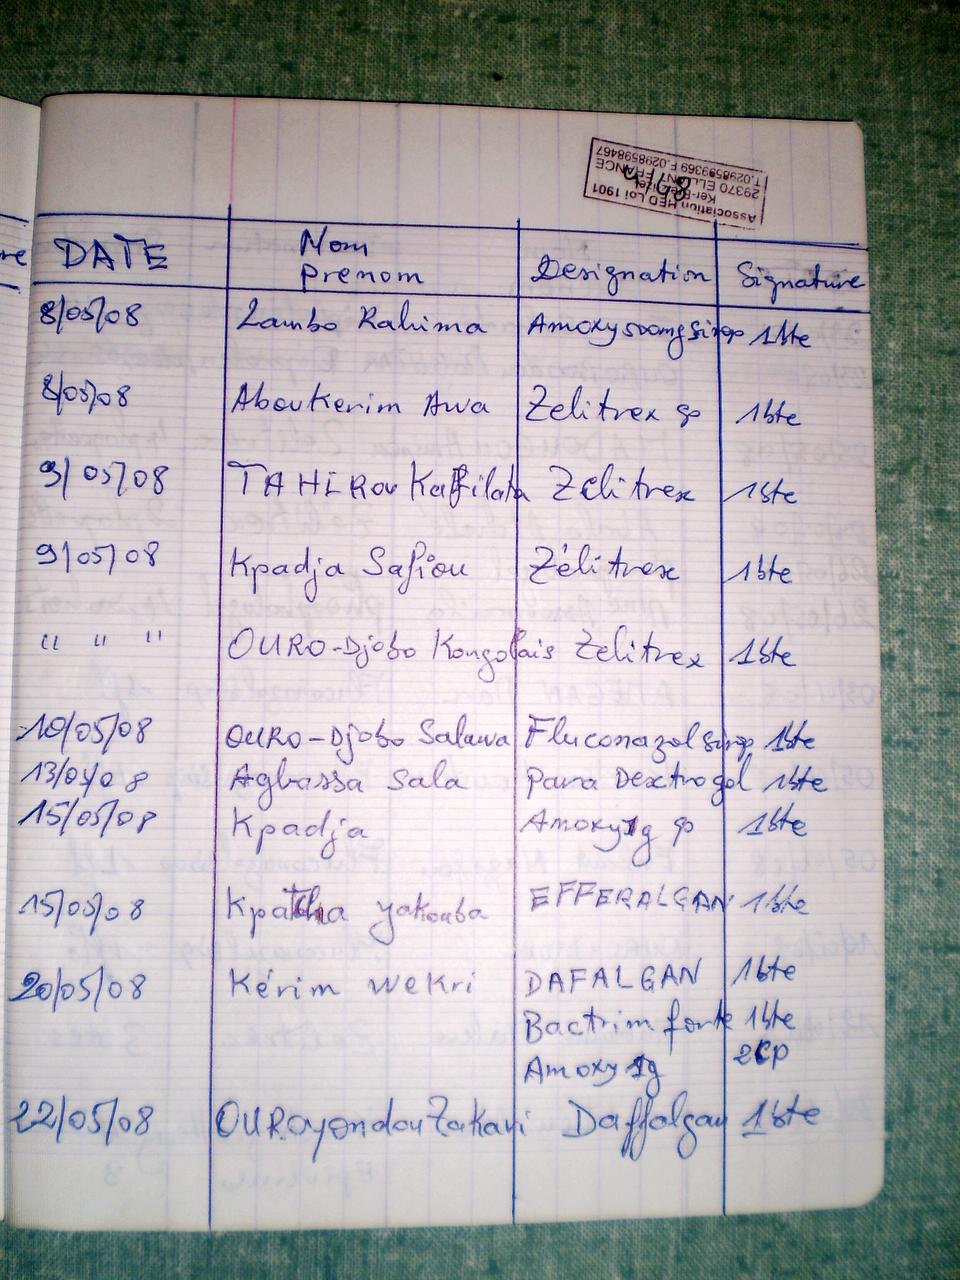 Association MED Loi 1901
29370 ELLIANT FRANCE
T.0298599369 F.0298598467
DATE Nom prenom Designation Signature
8/05/08 Zambo Rahima Amoxy 500mg sirop 1bte
8/05/08 Aboukerim Awa Zelitrex 1bte
9/05/08 TAHIROU Kaffilata Zelitrex 1bte
9/05/08 Kpadja Safiou Zélitrex 1bte
" " " OURO-Djobo Kongolais Zelitrex 1bte
10/05/08 OURO-Djobo Salawa Fluconazol sirop 1bte
13/0 08 Agbassa Sala Para Dextrogol 1bte
15/05/08 Kpadja Amoxy 1g 1bte
15/05/08 Kpatcha yakouba EFFERALGAN 1bte
20/05/08 Kérim Wekri DAFALGAN 1bte
Bactrim forte 1bte
Amoxy 1g 2cp
22/05/08 OUROyondou Zakari Daffalgan 1bte